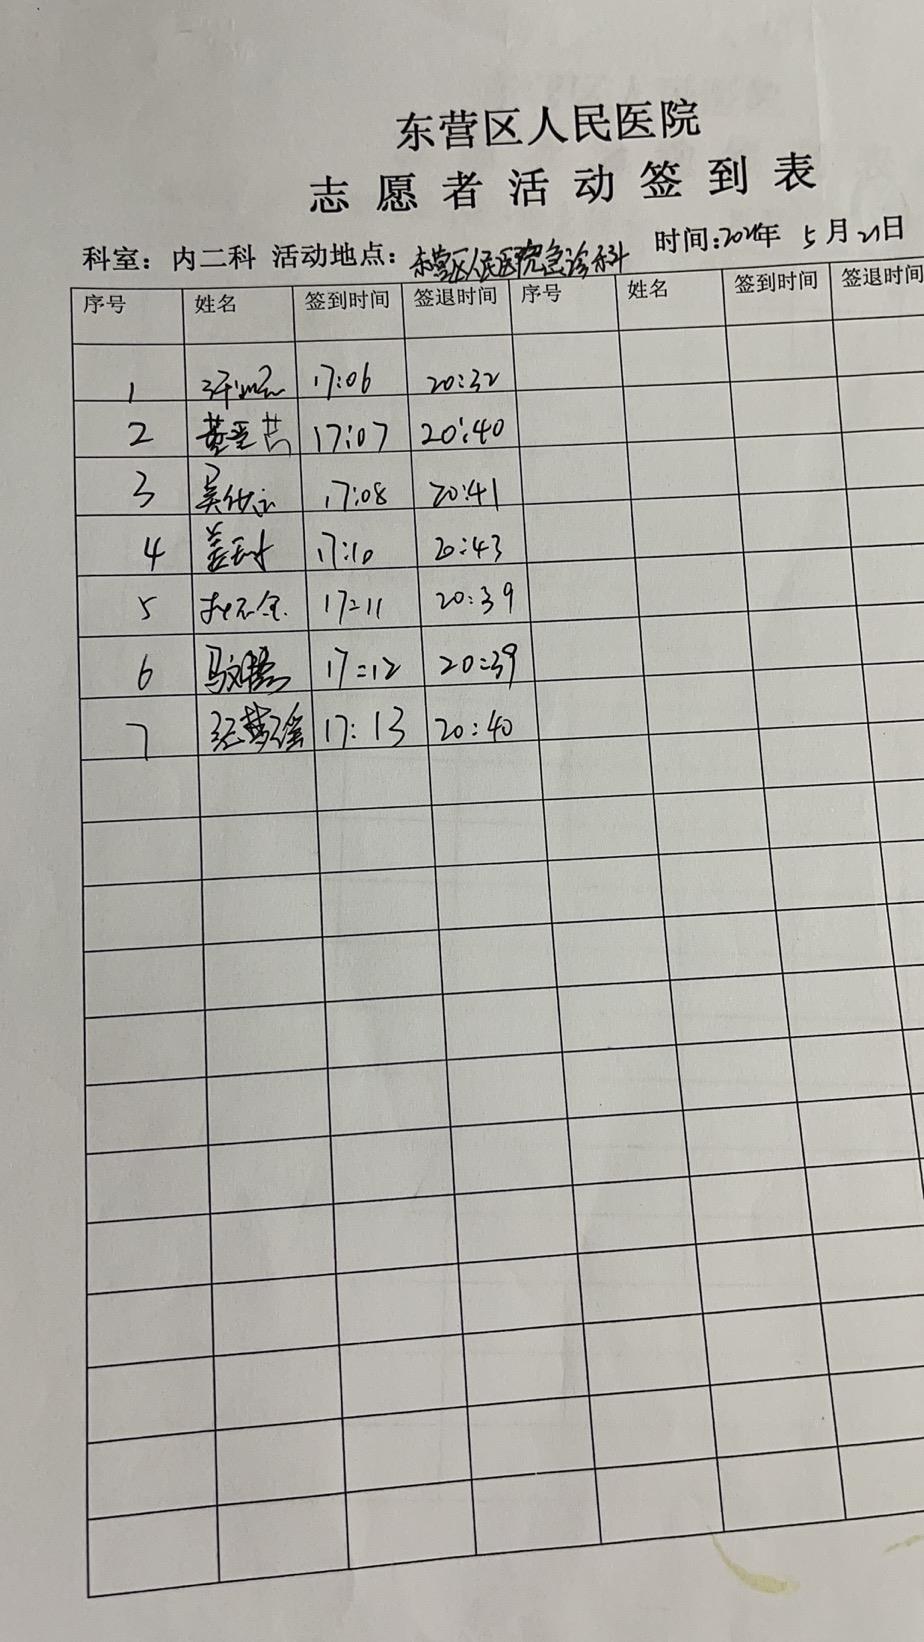 东营区人民医院
志愿者活动签到表
科室：内二科 活动地点：东营区人民医院急诊科 时间：2024年 5月21日
序号 姓名 签到时间 签退时间 序号 姓名 签到时间 签退时间
1 17:06 20:32
2 17:07 20:40
3 17:08 20:41
4 17:10 20:43
5 17:11 20:39
6 马文腾 17:12 20:39
7 17:13 20:40